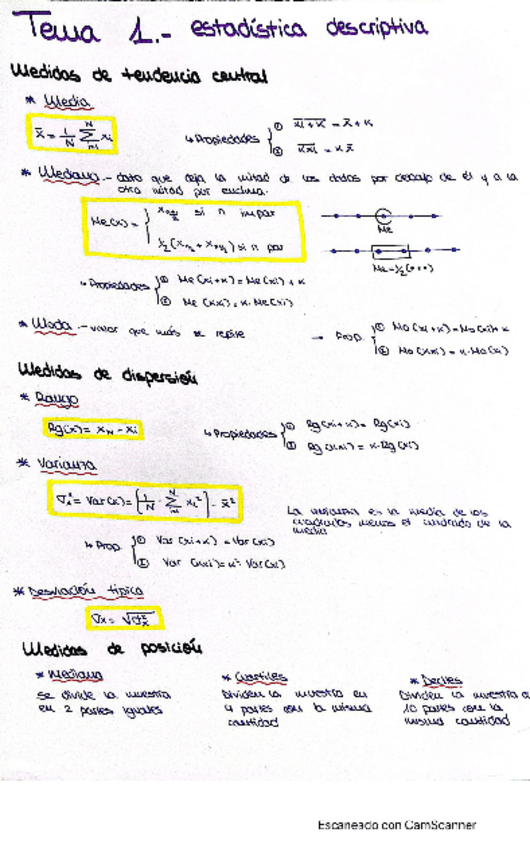 Tema 1.- estadística descriptiva
Medidas de tendencia central
* Media
x̄ = 1/N Σ xi
↳ Propiedades { ① xi + K = x̄ + K
② Kxi = K x̄
* Mediana.- dato que deja la mitad de los datos por debajo de él y a la
otra mitad por encima.
Me(x) = { si n impar
½ ( + ) si n par
Me
Me = ½(•+•)
↳ Propiedades { ① Me(xi+K) = Me(xi) + K
② Me(Kxi) = K · Me(xi)
* Moda.- valor que más se repite
→ Prop. { ① Mo(xi+K) = Mo(xi)+K
② Mo(Kxi) = K·Mo(xi)
Medidas de dispersión
* Rango
Rg(x) = xN - xi
↳ Propiedades { ① Rg(xi+K) = Rg(xi)
② Rg(Kxi) = K·Rg(xi)
* Varianza
σx² = Var(x) = [1/N · Σ xi²] - x̄²
La varianza es la media de los
cuadrados menos el cuadrado de la
media
↳ Prop. { ① Var(xi+K) = Var(xi)
② Var(Kxi) = K²·Var(xi)
* Desviación típica
σx = √σx²
Medidas de posición
* Mediana
Se divide la muestra
en 2 partes iguales
* Cuartiles
Dividen la muestra en
4 partes con la misma
cantidad
* Deciles
Dividen la muestra
10 partes con la
misma cantidad
Escaneado con CamScanner